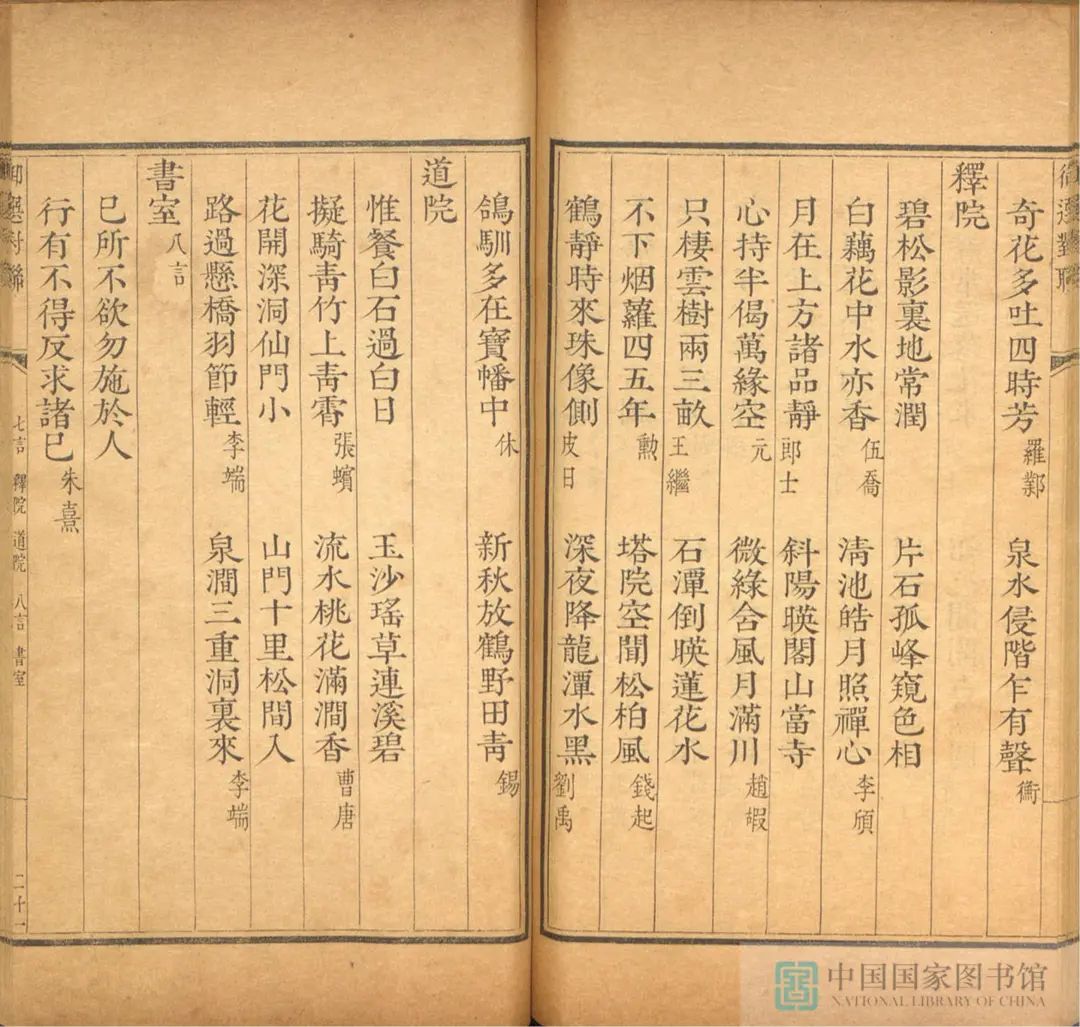 奇花多吐四時芳 羅鄴 泉水侵階乍有聲 衡
釋院
碧松影裏地常潤 片石孤峰窺色相
白藕花中水亦香 伍喬 清池皓月照禪心 李頎
月在上方諸品靜 郎士 斜陽暎閣山當寺
心持半偈萬緣空 元 微綠含風月滿川 趙嘏
只棲雲樹兩三畝 王繼 石潭倒暎蓮花水
不下烟蘿四五年 勲 塔院空聞松柏風 錢起
鶴靜時來珠像側 皮日 深夜降龍潭水黑 劉禹
鴿馴多在寶幡中 休 新秋放鶴野田青 錫
道院
惟餐白石過白日 玉沙瑶草連溪碧
擬騎青竹上青霄 張蠙 流水桃花滿澗香 曹唐
花開深洞仙門小 山門十里松間入
路過懸橋羽節輕 李端 泉澗三重洞裏來 李端
書室 八言
己所不欲勿施於人
行有不得反求諸己 朱熹
御選對聯 七言 釋院 道院 八言 書室 二十一
中国国家图书馆
NATIONAL LIBRARY OF CHINA